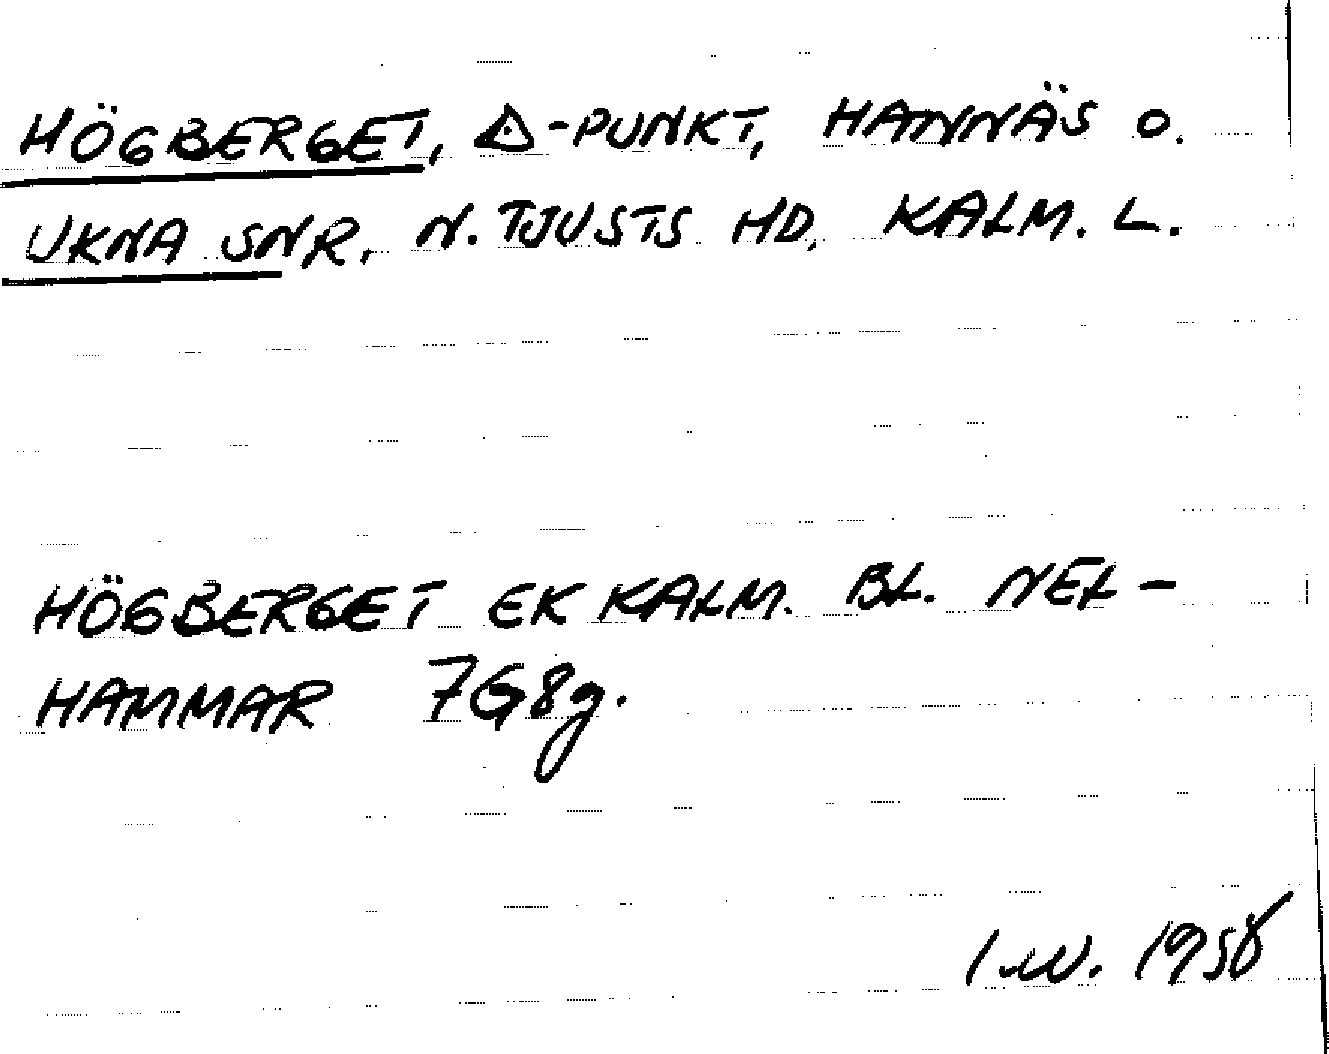 HÖGBERGET, △-PUNKT, HANNÄS O.
UKNA SNR, N. TJUSTS HD, KALM. L.
HÖGBERGET EK KALM. BL. NEL-
HAMMAR 7G8g.
I.W. 1958